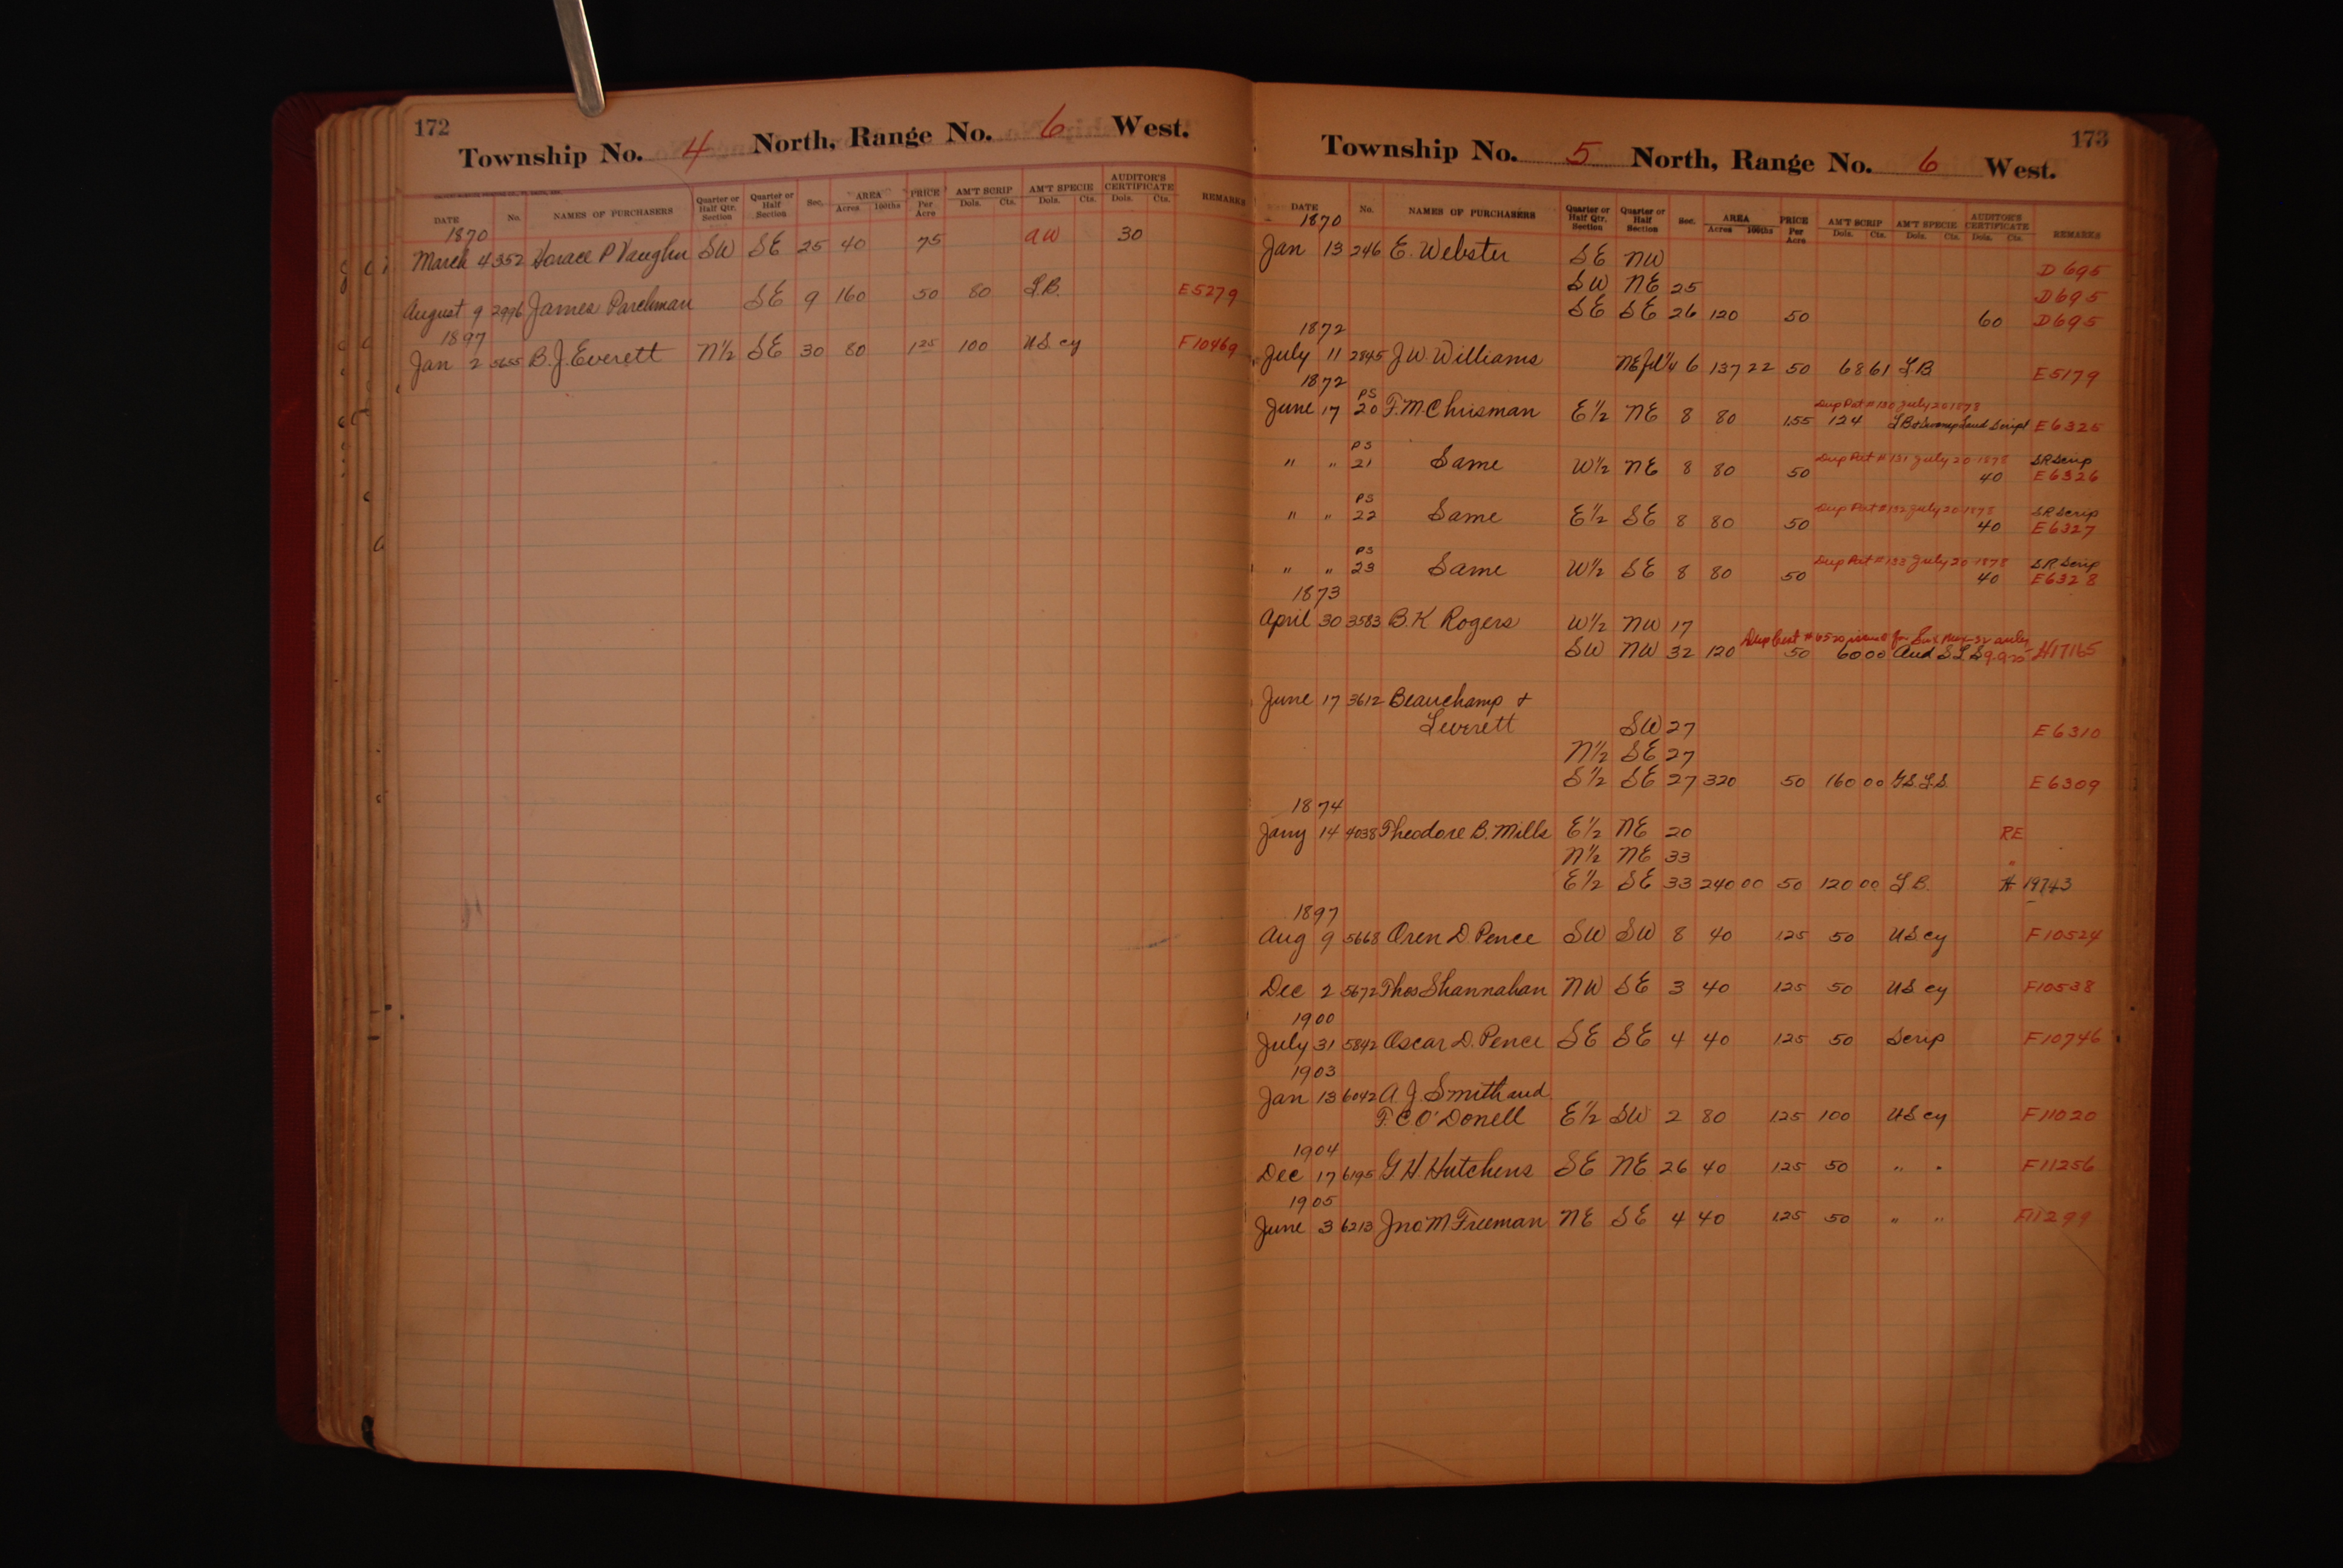 172
Township No. 4 North, Range No. 6 West.
DATE No. NAMES OF PURCHASERS Quarter or Half Qtr. Section Quarter or Half Section Sec. AREA Acres 100ths PRICE Per Acre AM'T SCRIP Dols. Cts. AM'T SPECIE Dols. Cts. AUDITOR'S CERTIFICATE Dols. Cts. REMARKS
1870
March 4 352 Horace P Vaughn SW SE 25 40 75 aw 30
August 9 2996 James Parchman SE 9 160 50 80 L.B. E5279
1897
Jan 2 5655 B. J. Everett N½ SE 30 80 1 25 100 US cy F10469
173
Township No. 5 North, Range No. 6 West.
DATE No. NAMES OF PURCHASERS Quarter or Half Qtr. Section Quarter or Half Section Sec. AREA Acres 100ths PRICE Per Acre AM'T SCRIP Dols. Cts. AM'T SPECIE Dols. Cts. AUDITOR'S CERTIFICATE Dols. Cts. REMARKS
1870
Jan 13 246 E. Webster SE NW D 695
SW NE 25 D695
SE SE 26 120 50 60 D695
1872
July 11 2845 J W. Williams NE frl ¼ 6 137 22 50 68 61 L B E5179
1872
Dup Pat # 130 July 20 1878
June 17 PS 20 F. M. Chrisman E½ NE 8 80 1.55 124 L B & Swamp Land Script E6325
" " PS 21 Same W½ NE 8 80 50 Dup Pat # 131 July 20 1878 40 SR Scrip E6326
" " PS 22 Same E½ SE 8 80 50 Dup Pat # 132 July 20 1878 40 SR Scrip E6327
" " PS 23 Same W½ SE 8 80 50 Dup Pat # 133 July 20 1878 40 SR Scrip E6328
1873
April 30 3583 B. K Rogers W½ NW 17
Dup Cert # 6520 issued for
SW NW 32 120 50 60 00 Aud S L S H17165
June 17 3612 Beauchamp &
Leverett SW 27 E6310
N½ SE 27
S½ SE 27 320 50 160 00 E6309
1874
Jany 14 4038 Theodore B. Mills E½ NE 20 RE
N½ NE 33 "
E½ SE 33 240 00 50 120 00 L.B. H 19743
1897
Aug 9 5668 Oren D. Pence SW SW 8 40 125 50 US cy F10524
Dec 2 5672 Thos Shannahan NW SE 3 40 125 50 US cy F10538
1900
July 31 5842 Oscar D. Pence SE SE 4 40 125 50 Scrip F10746
1903
Jan 13 6042 A. J. Smith and
F. C O'Donell E½ SW 2 80 1.25 100 US cy F11020
1904
Dec 17 6195 G. H. Hutchens SE NE 26 40 1.25 50 " " F11256
1905
June 3 6213 Jno M Freeman NE SE 4 40 1.25 50 " " F11299